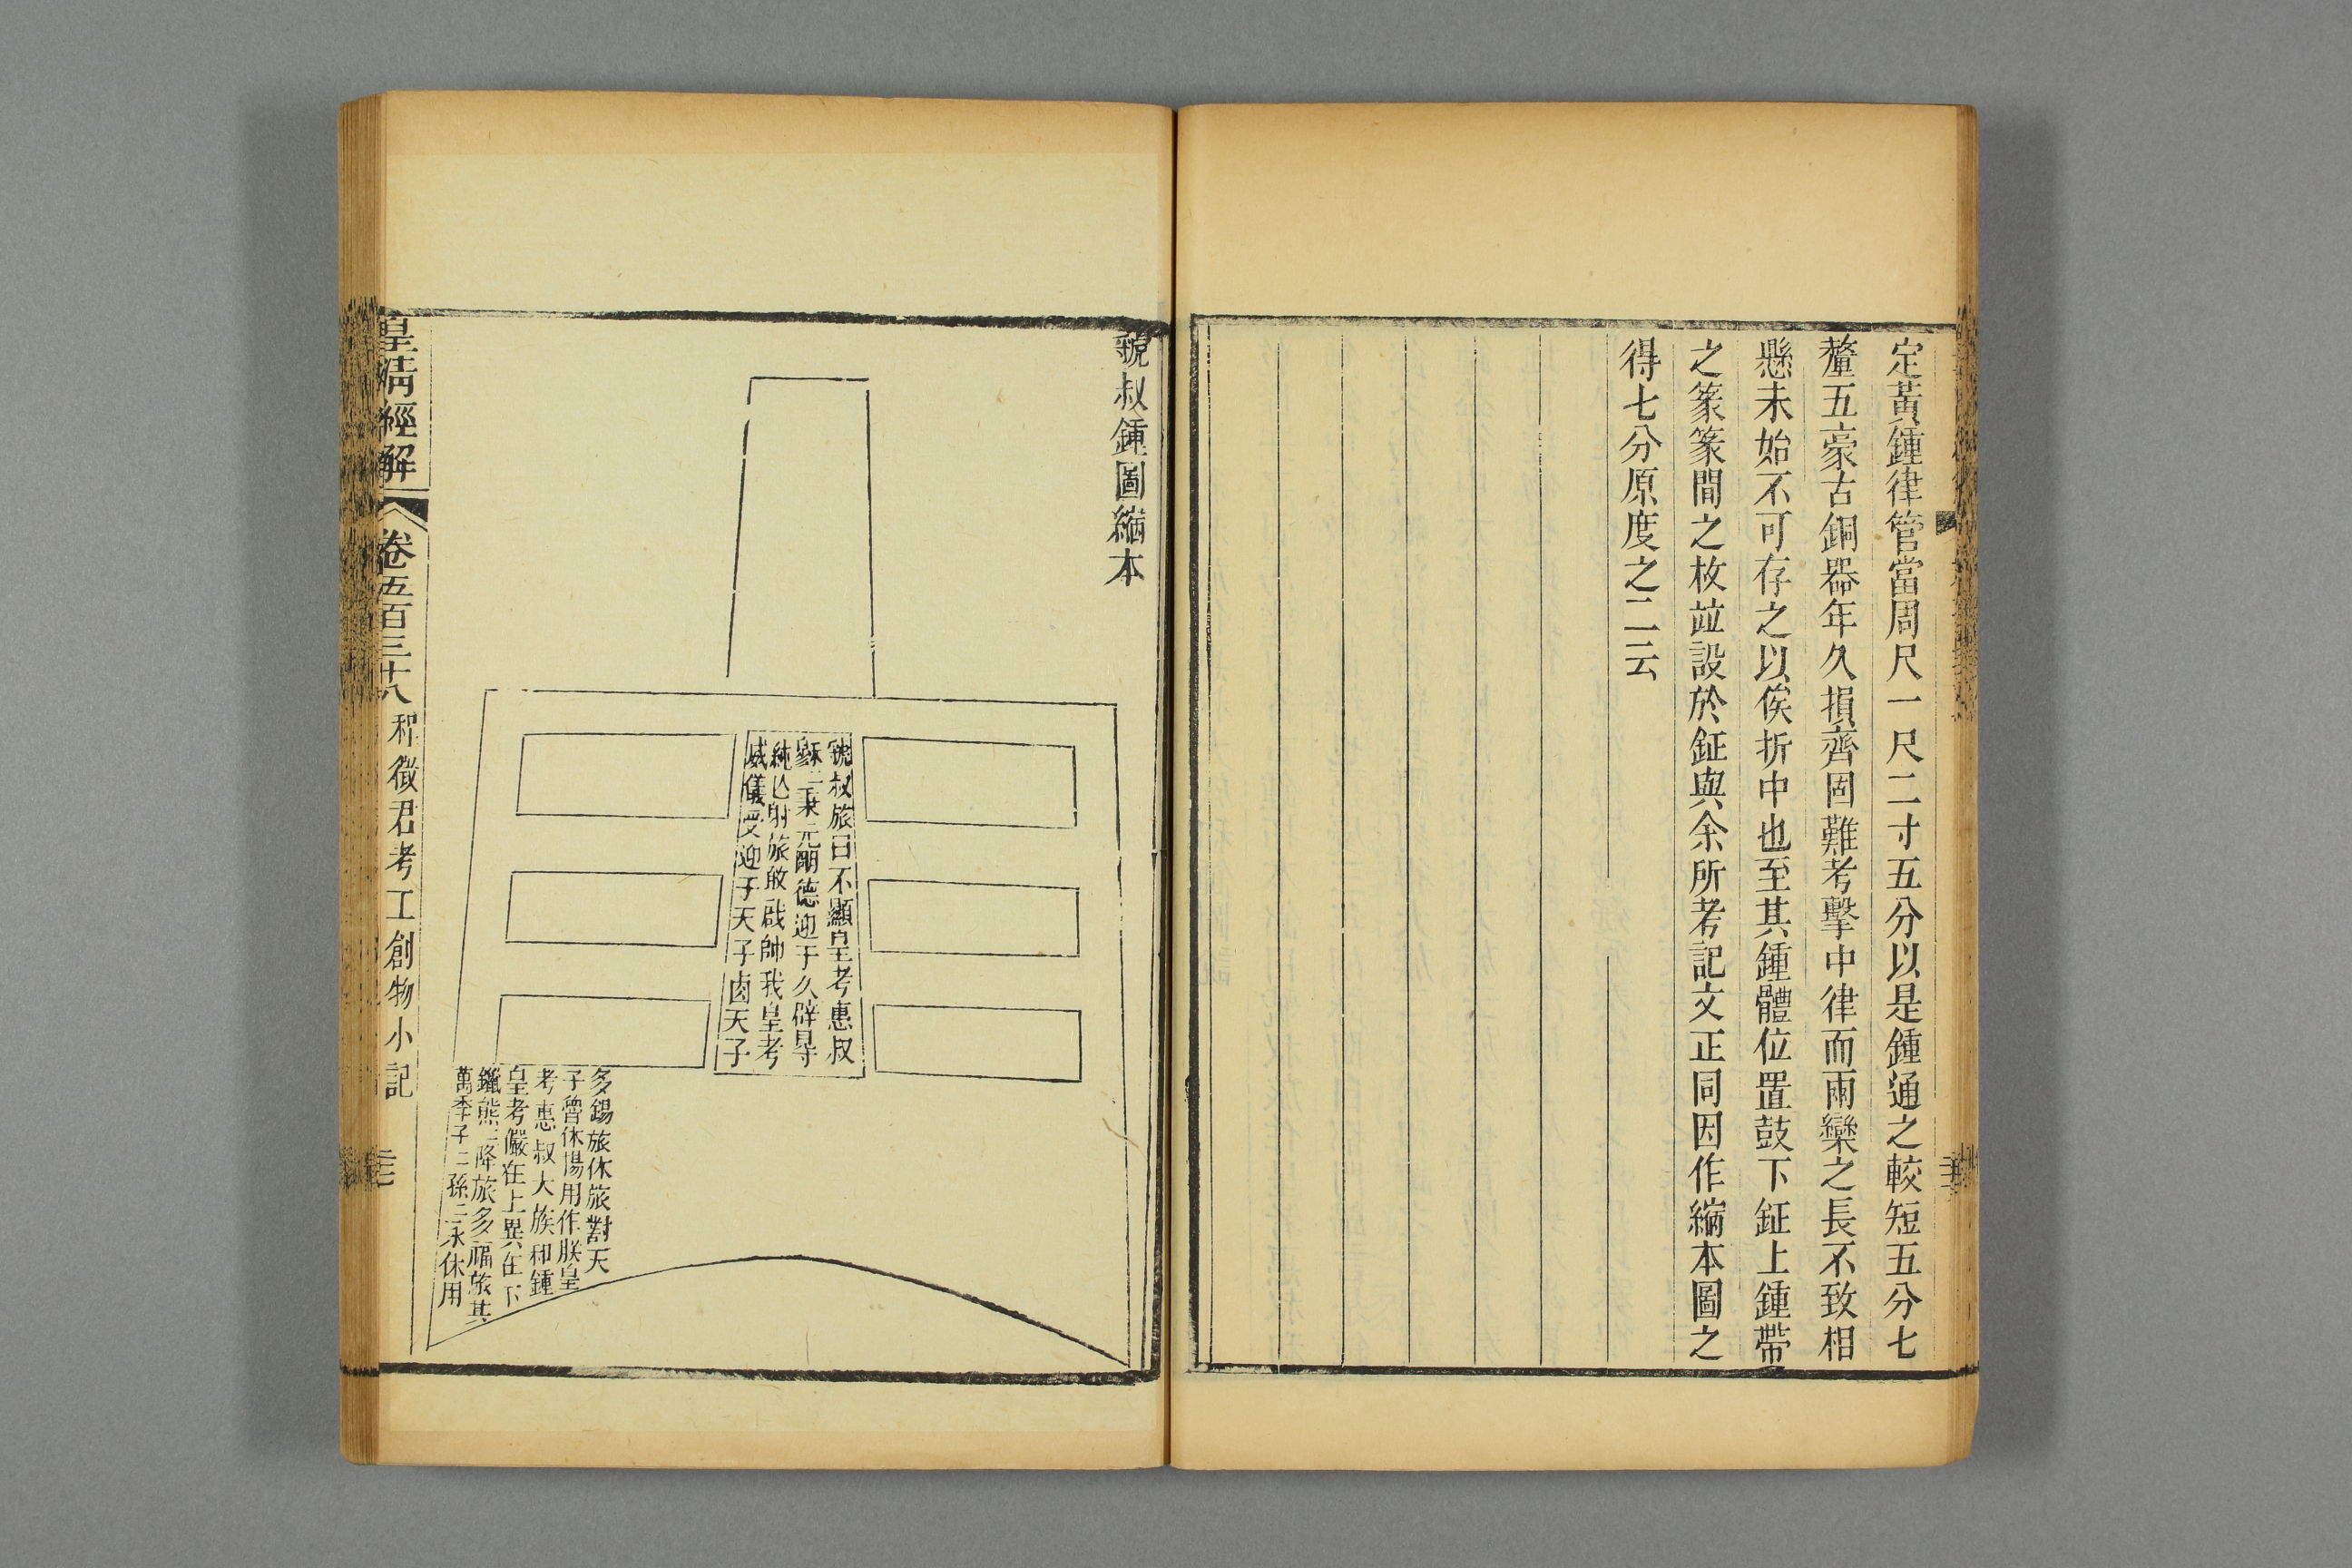 定黃鍾律管當周尺一尺二寸五分以是鍾通之較短五分七
釐五豪古銅器年久損齊固難考擊中律而兩欒之長不致相
懸未始不可存之以俟折中也至其鍾體位置鼓下鉦上鍾帶
之篆篆間之枚竝設於鉦與余所考記文正同因作縮本圖之
得七分原度之二云
虢叔鍾圖縮本
虢叔旅曰不顯皇考惠叔
穌二秉元朙德迎于久辟㝵
純亾射旅敢啟帥我皇考
威儀受迎于天子卣天子
多錫旅休旅對天
子魯休揚用作朕皇
考惠叔大㭉和鍾
皇考儼在上異在下
熊二降旅多福旅其
萬季子二孫二永休用
皇清經解
卷五百三十八
程徵君考工創物小記